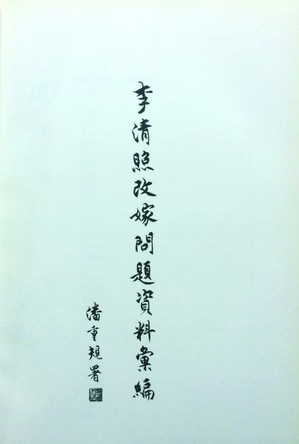 李清照改嫁問題資料彙編
潘重規署